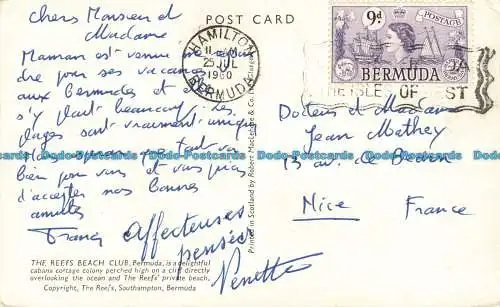 Chers Monsieur et
Madame
Maman est venue me
dre pour ses vacances
aux Bermudes et
s'y plait beaucoup. Les
plages sont vraiment uniques
bien pour vous et vous prie
d'accepter nos bonnes
amitiés
Francy
Affectueuses
pensées
Venette
THE REEFS BEACH CLUB, Bermuda, is a delightful
cabana cottage colony perched high on a cliff directly
overlooking the ocean and The Reefs' private beach.
Copyright, The Reefs, Southampton, Bermuda
POST CARD
HAMILTON
11 - AM
25 JUL
1960
BERMUDA
9D
POSTAGE
BERMUDA
THE ISLE OF REST
Printed in Scotland by Robert MacLehose & Co. Ltd., Glasgow
Docteur et Madame
Jean Mathey
13 av. de
Nice France
Dodo-Postcards Dodo-Postcards Dodo-Postcards Dodo-Postcards Dodo-Postcards